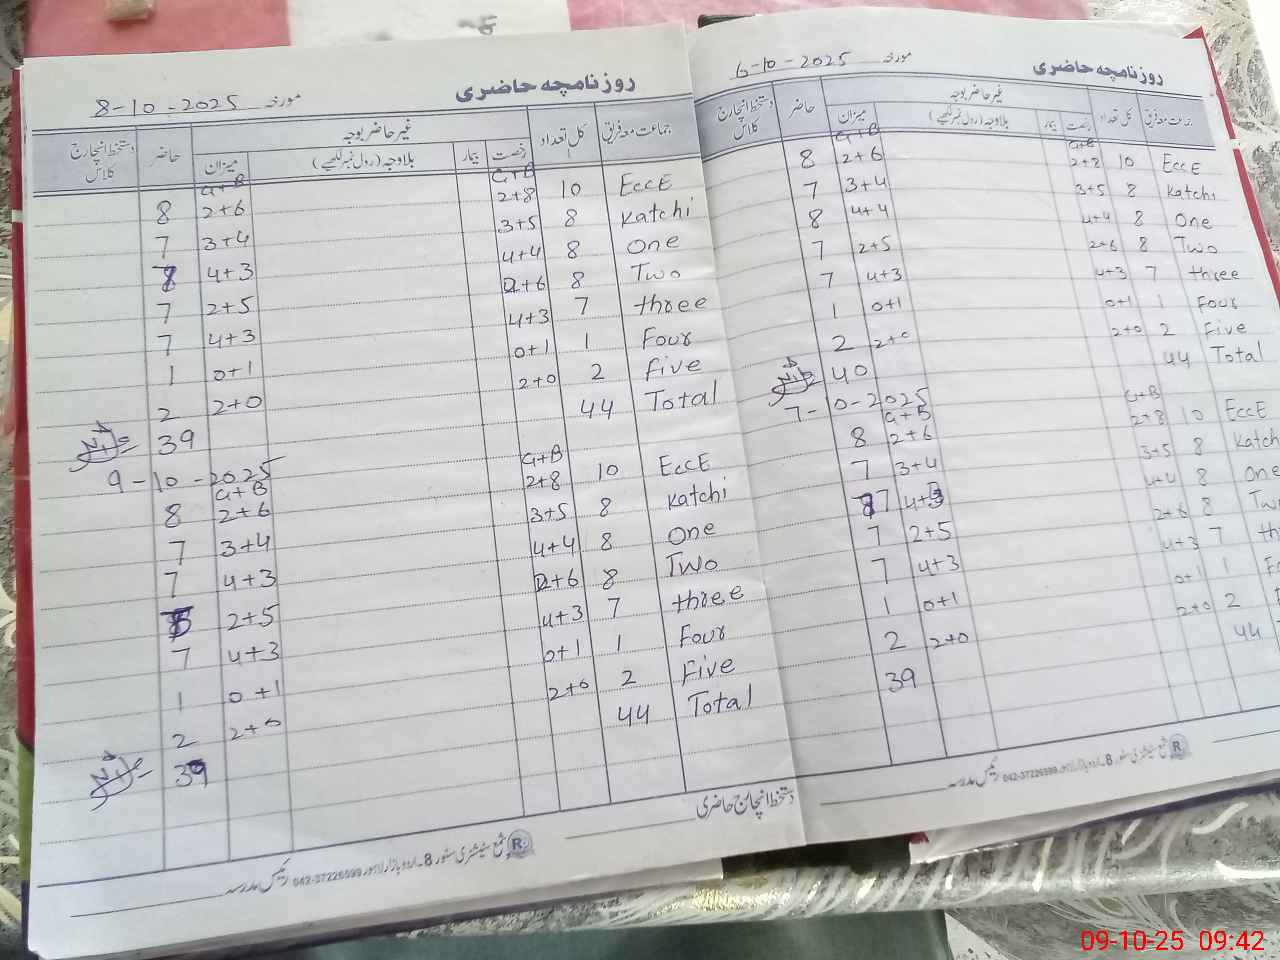 روزنامچہ حاضری
مورخہ 8-10-2025
جماعت معہ فریق کل تعداد رخصت بیمار بلاوجہ (رول نمبر لکھیے) میزان حاضر دستخط انچارج کلاس
غیر حاضر بوجہ
G+B G+B
EccE 10 2+8 2+6 8
Katchi 8 3+5 3+4 7
One 8 4+4 4+3 7
Two 8 2+6 2+5 7
three 7 4+3 4+3 7
Four 1 0+1 0+1 1
five 2 2+0 2+0 2
Total 44 39
9-10-2025
G+B G+B
EccE 10 2+8 2+6 8
Katchi 8 3+5 3+4 7
One 8 4+4 4+3 7
Two 8 2+6 2+5 7
three 7 4+3 4+3 7
Four 1 0+1 0+1 1
Five 2 2+0 2+0 2
Total 44 39
دستخط انچارج حاضری
شمع سٹیشنری سٹور 8۔اردو بازار لاہور 042-37226599 رئیس مدرسہ
روزنامچہ حاضری
مورخہ 6-10-2025
جماعت معہ فریق کل تعداد رخصت بیمار بلاوجہ (رول نمبر لکھیے) میزان حاضر دستخط انچارج کلاس
غیر حاضر بوجہ
G+B G+B
EccE 10 2+8 2+6 8
Katchi 8 3+5 3+4 7
One 8 4+4 4+4 8
Two 8 2+6 2+5 7
three 7 4+3 4+3 7
Four 1 0+1 0+1 1
Five 2 2+0 2+0 2
Total 44 40
7-10-2025
G+B G+B
EccE 10 2+8 2+6 8
Katch 8 3+5 3+4 7
One 8 4+4 4+3 7
Tw 8 2+6 2+5 7
th 7 4+3 4+3 7
Fo 1 0+1 0+1 1
2 2+0 2+0 2
44 39
شمع سٹیشنری سٹور 8۔اردو بازار لاہور 042-37226599 رئیس مدرسہ
09-10-25 09:42